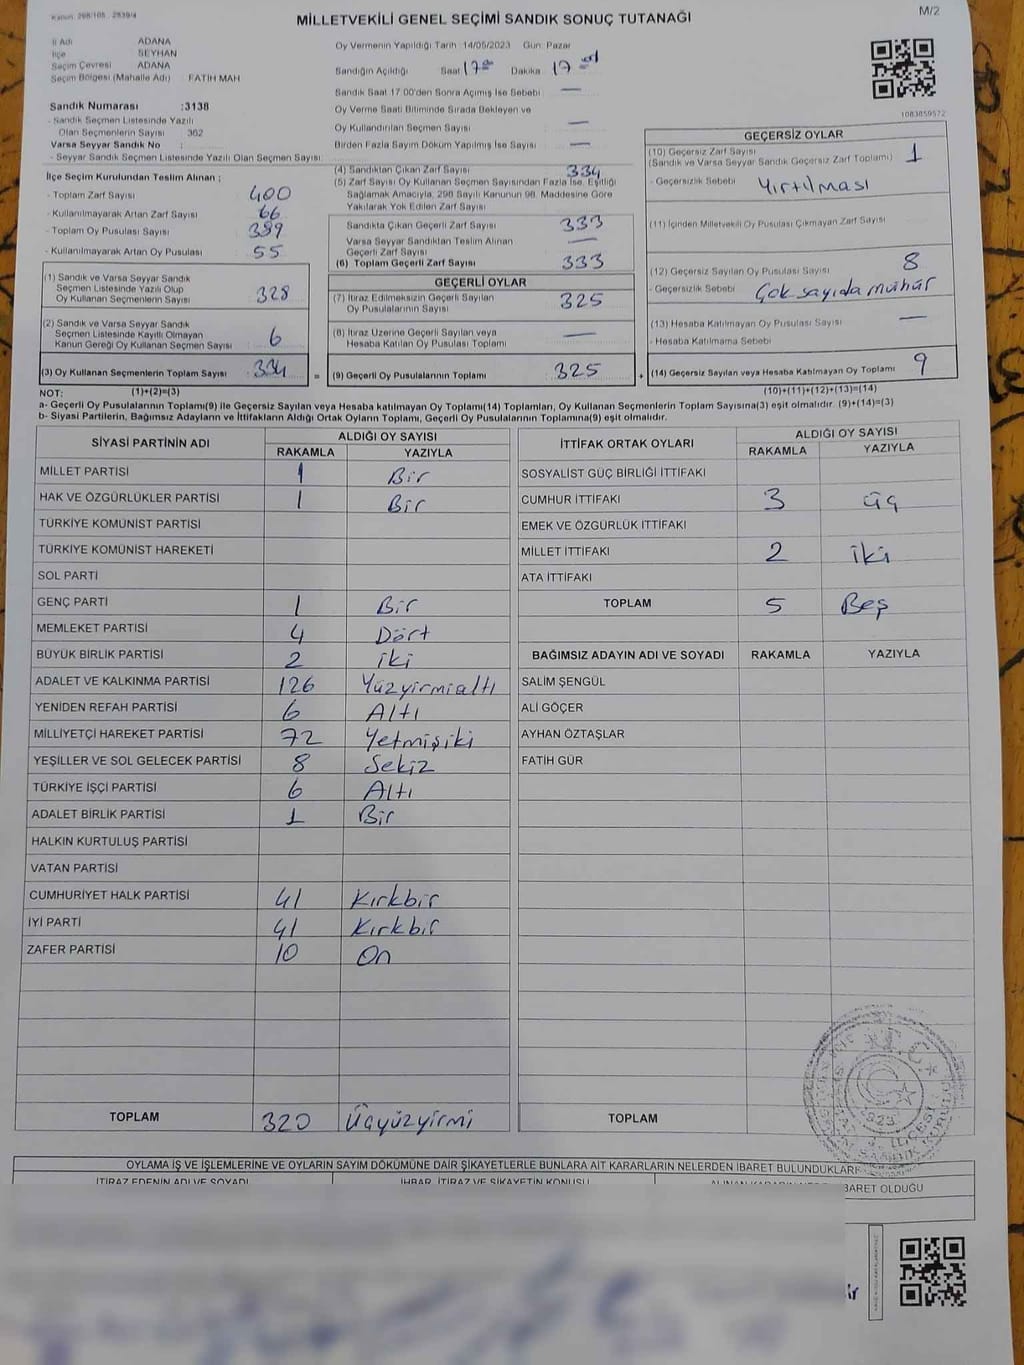 Kanun: 298/105 , 2839/4
MİLLETVEKİLİ GENEL SEÇİMİ SANDIK SONUÇ TUTANAĞI
M/2
İl Adı ADANA
İlçe SEYHAN
Seçim Çevresi ADANA
Seçim Bölgesi (Mahalle Adı) : FATİH MAH
Sandık Numarası :3138
- Sandık Seçmen Listesinde Yazılı
Olan Seçmenlerin Sayısı 362
Varsa Seyyar Sandık No :
- Seyyar Sandık Seçmen Listesinde Yazılı Olan Seçmen Sayısı:
İlçe Seçim Kurulundan Teslim Alınan ;
- Toplam Zarf Sayısı 400
- Kullanılmayarak Artan Zarf Sayısı 66
- Toplam Oy Pusulası Sayısı 389
- Kullanılmayarak Artan Oy Pusulası 55
(1) Sandık ve Varsa Seyyar Sandık
Seçmen Listesinde Yazılı Olup
Oy Kullanan Seçmenlerin Sayısı 328
(2) Sandık ve Varsa Seyyar Sandık
Seçmen Listesinde Kayıtlı Olmayan
Kanun Gereği Oy Kullanan Seçmen Sayısı 6
(3) Oy Kullanan Seçmenlerin Toplam Sayısı 334 =
Oy Vermenin Yapıldığı Tarih :14/05/2023 Gün: Pazar
Sandığın Açıldığı Saat 17 Dakika 17
Sandık Saat 17:00'den Sonra Açımış İse Sebebi : —
Oy Verme Saati Bitiminde Sırada Bekleyen ve
Oy Kullandırılan Seçmen Sayısı : —
Birden Fazla Sayım Döküm Yapılmış İse Sayısı : —
(4) Sandıktan Çıkan Zarf Sayısı 334
(5) Zarf Sayısı Oy Kullanan Seçmen Sayısından Fazla İse, Eşitliği
Sağlamak Amacıyla, 298 Sayılı Kanunun 98. Maddesine Göre
Yakılarak Yok Edilen Zarf Sayısı
Sandıkta Çıkan Geçerli Zarf Sayısı 333
Varsa Seyyar Sandıktan Teslim Alınan
Geçerli Zarf Sayısı —
(6) Toplam Geçerli Zarf Sayısı 333
GEÇERLİ OYLAR
(7) İtiraz Edilmeksizin Geçerli Sayılan
Oy Pusulalarının Sayısı 325
(8) İtiraz Üzerine Geçerli Sayılan veya
Hesaba Katılan Oy Pusulası Toplamı —
(9) Geçerli Oy Pusulalarının Toplamı 325 +
1083859572
GEÇERSİZ OYLAR
(10) Geçersiz Zarf Sayısı 1
(Sandık ve Varsa Seyyar Sandık Geçersiz Zarf Toplamı)
- Geçersizlik Sebebi Yırtılması
(11) İçinden Milletvekili Oy Pusulası Çıkmayan Zarf Sayısı
(12) Geçersiz Sayılan Oy Pusulası Sayısı 8
- Geçersizlik Sebebi Çok sayıda mühür
(13) Hesaba Katılmayan Oy Pusulası Sayısı —
- Hesaba Katılmama Sebebi
(14) Geçersiz Sayılan veya Hesaba Katılmayan Oy Toplamı 9
NOT: (1)+(2)=(3) (10)+(11)+(12)+(13)=(14)
a- Geçerli Oy Pusulalarının Toplamı(9) ile Geçersiz Sayılan veya Hesaba katılmayan Oy Toplamı(14) Toplamları, Oy Kullanan Seçmenlerin Toplam Sayısına(3) eşit olmalıdır. (9)+(14)=(3)
b- Siyasi Partilerin, Bağımsız Adayların ve İttifakların Aldığı Ortak Oyların Toplamı, Geçerli Oy Pusulalarının Toplamına(9) eşit olmalıdır.
SİYASİ PARTİNİN ADI ALDIĞI OY SAYISI
RAKAMLA YAZIYLA
MİLLET PARTİSİ 1 Bir
HAK VE ÖZGÜRLÜKLER PARTİSİ 1 Bir
TÜRKİYE KOMÜNİST PARTİSİ
TÜRKİYE KOMÜNİST HAREKETİ
SOL PARTİ
GENÇ PARTİ 1 Bir
MEMLEKET PARTİSİ 4 Dört
BÜYÜK BİRLİK PARTİSİ 2 iki
ADALET VE KALKINMA PARTİSİ 126 Yüzyirmialtı
YENİDEN REFAH PARTİSİ 6 Altı
MİLLİYETÇİ HAREKET PARTİSİ 72 Yetmişiki
YEŞİLLER VE SOL GELECEK PARTİSİ 8 Sekiz
TÜRKİYE İŞÇİ PARTİSİ 6 Altı
ADALET BİRLİK PARTİSİ 1 Bir
HALKIN KURTULUŞ PARTİSİ
VATAN PARTİSİ
CUMHURİYET HALK PARTİSİ 41 Kırkbir
İYİ PARTİ 41 Kırkbir
ZAFER PARTİSİ 10 On
TOPLAM 320 Üçyüzyirmi
İTTİFAK ORTAK OYLARI ALDIĞI OY SAYISI
RAKAMLA YAZIYLA
SOSYALİST GÜÇ BİRLİĞİ İTTİFAKI
CUMHUR İTTİFAKI 3 üç
EMEK VE ÖZGÜRLÜK İTTİFAKI
MİLLET İTTİFAKI 2 iki
ATA İTTİFAKI
TOPLAM 5 Beş
BAĞIMSIZ ADAYIN ADI VE SOYADI RAKAMLA YAZIYLA
SALİM ŞENGÜL
ALİ GÖÇER
AYHAN ÖZTAŞLAR
FATİH GÜR
TOPLAM
OYLAMA İŞ VE İŞLEMLERİNE VE OYLARIN SAYIM DÖKÜMÜNE DAİR ŞİKAYETLERLE BUNLARA AİT KARARLARIN NELERDEN İBARET BULUNDUKLARI
İTİRAZ EDENİN ADI VE SOYADI İHBAR, İTİRAZ VE ŞİKAYETİN KONUSU BARET OLDUĞU